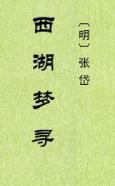 西湖梦寻
〔明〕张岱